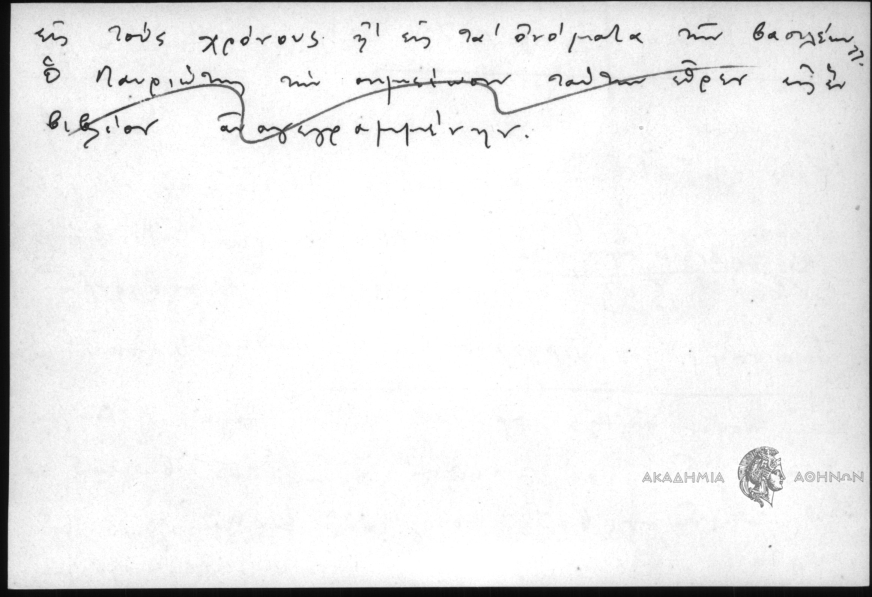 εἰς τοὺς χρόνους ἢ εἰς τὰ ὀνόματα τῶν βασιλέων
ὁ Μαυριώτης τὴν σημείωσιν ταύτην εὗρεν εἰς ἓν
βιβλίον ἀναγεγραμμένην.
ΑΚΑΔΗΜΙΑ ΑΘΗΝΩΝ